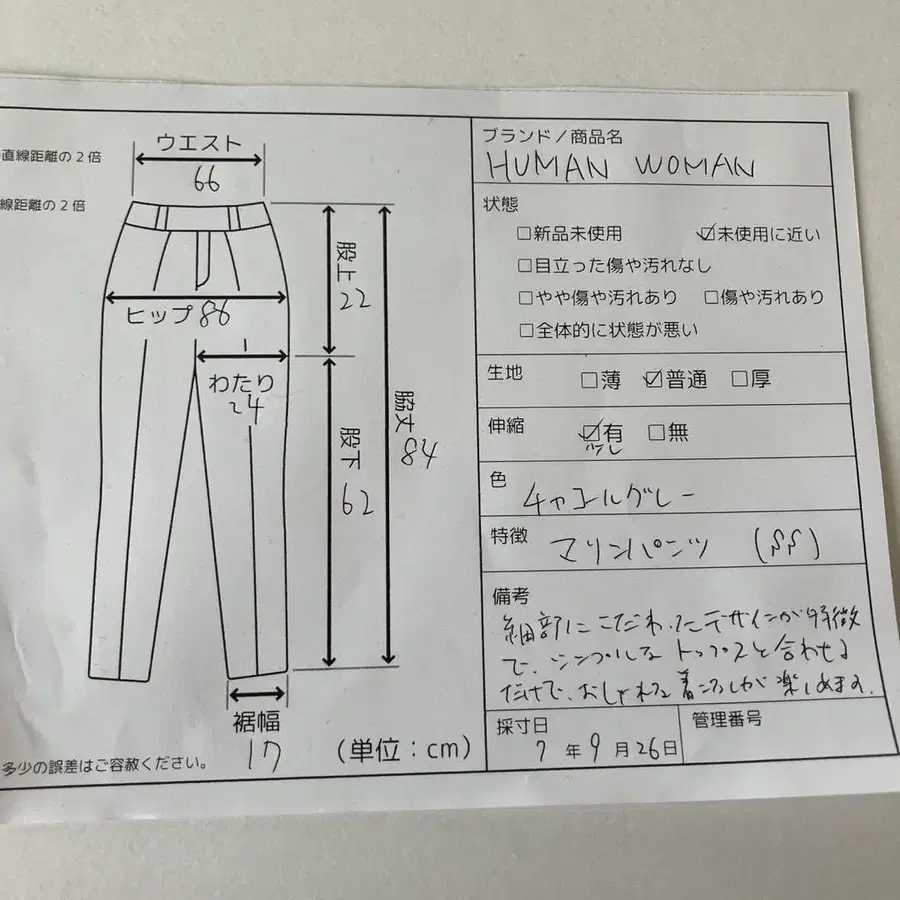 直線距離の2倍
線距離の2倍
ウエスト
66
股上
22
ヒップ 86
わたり
24
脇丈
84
股下
62
裾幅
17
(単位:cm)
多少の誤差はご容赦ください。
ブランド/商品名
HUMAN WOMAN
状態
□新品未使用 ☑未使用に近い
□目立った傷や汚れなし
□やや傷や汚れあり □傷や汚れあり
□全体的に状態が悪い
生地 □薄 ☑普通 □厚
伸縮 ☑有 □無
少し
色
チャコールグレー
特徴
マリンパンツ (SS)
備考
細部にこだわったデザインが特徴
で、シンプルなトップスと合わせる
だけで、おしゃれな着こなしが楽しめます。
採寸日
7年9月26日
管理番号